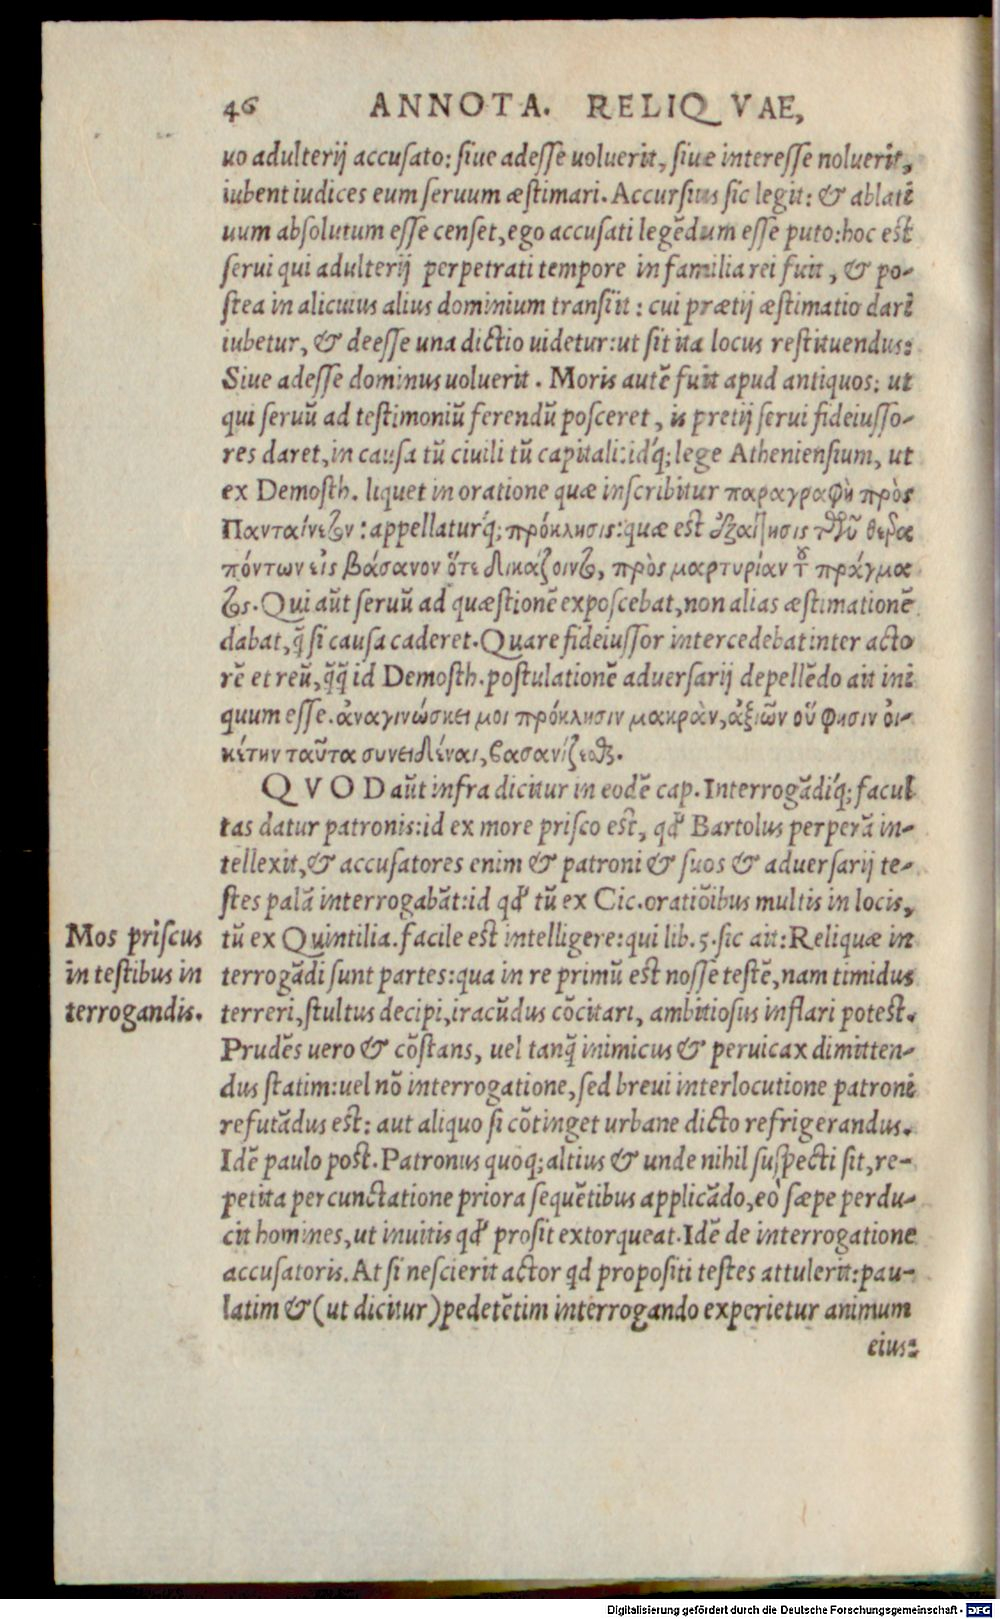 46 ANNOTA. RELIQVAE,
uo adulterij accusato: siue adesse uoluerit, siue interesse noluerit,
iubent iudices eum seruum æstimari. Accursius sic legit: & ablati
uum absolutum esse censet, ego accusati legēdum esse puto: hoc est
serui qui adulterij perpetrati tempore in familia rei fuit, & po-
stea in alicuius alius dominium transiit: cui prætij æstimatio dari
iubetur, & deesse una dictio uidetur: ut sit ita locus restituendus:
Siue adesse dominus uoluerit. Moris autē fuit apud antiquos: ut
qui seruū ad testimoniū ferendū posceret, is pretij serui fideiusso-
res daret, in causa tū ciuili tū capitali: idq́; lege Atheniensium, ut
ex Demosth. liquet in oratione quæ inscribitur παραγραφὴ πρὸς
Πανταίνετον: appellaturq́; πρόκλησις: quæ est ἐξαίτησις τοῦ θερά
πόντων εἰς βάσανον ὅτε δικάζοιντο, πρὸς μαρτυρίαν τοῦ πράγμα
τος. Qui aūt seruū ad quæstionē exposcebat, non alias æstimationē
dabat, q̄ si causa caderet. Quare fideiussor intercedebat inter acto
rē et reū, q̄q̄ id Demosth. postulationē aduersarij depellēdo ait ini
quum esse. ἀναγινώσκει μοι πρόκλησιν μακρὰν, ἀξιῶν οὕ φησιν οἰ-
κέτην ταῦτα συνειδέναι, βασανίζεσθαι.
QVOD aūt infra dicitur in eodē cap. Interrogādiq́; facul
tas datur patronis: id ex more prisco est, qđ Bartolus perperā in-
tellexit, & accusatores enim & patroni & suos & aduersarij te-
stes palā interrogabāt: id qđ tū ex Cic. oratiōibus multis in locis,
Mos priscus
in testibus in
terrogandis.
tū ex Quintilia. facile est intelligere: qui lib. 5. sic ait: Reliquæ in
terrogādi sunt partes: qua in re primū est nosse testē, nam timidus
terreri, stultus decipi, iracūdus cōcitari, ambitiosus inflari potest.
Prudēs uero & cōstans, uel tanq̄ inimicus & peruicax dimitten-
dus statim: uel nō interrogatione, sed breui interlocutione patroni
refutādus est: aut aliquo si cōtinget urbane dicto refrigerandus.
Idē paulo post. Patronus quoq; altius & unde nihil suspecti sit, re-
petita percunctatione priora sequētibus applicādo, eò sæpe perdu-
cit homines, ut inuitis qđ prosit extorqueat. Idē de interrogatione
accusatoris. At si nescierit actor qd propositi testes attulerit: pau-
latim & (ut dicitur) pedetētim interrogando experietur animum
eius:
Digitalisierung gefördert durch die Deutsche Forschungsgemeinschaft - DFG